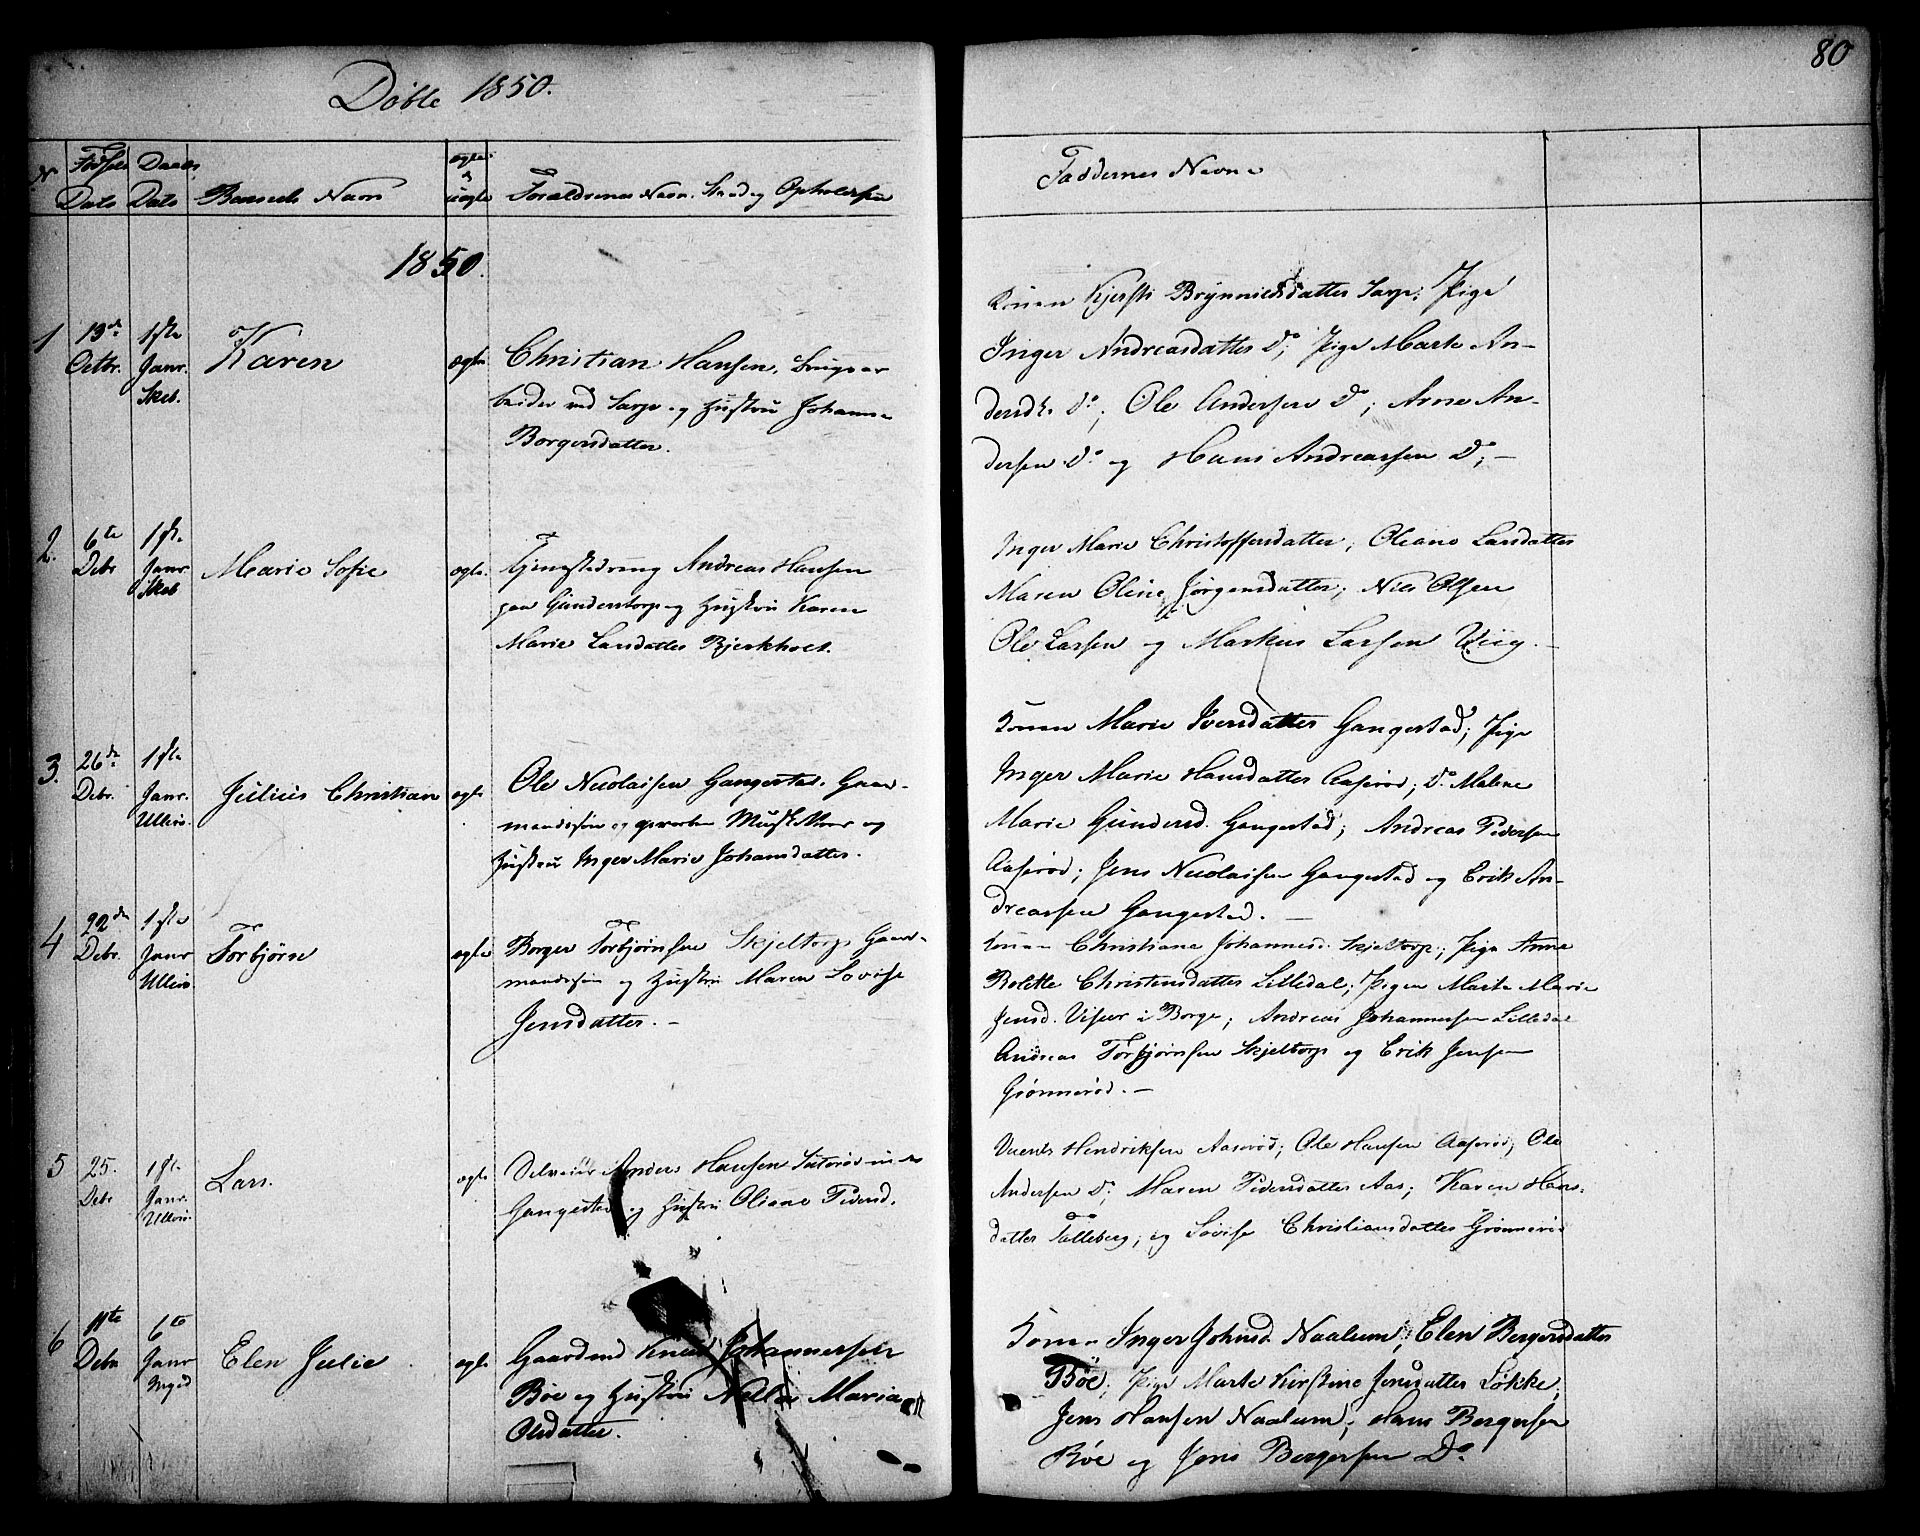 80
Døbte 1850.
No Fødsels Dato Daabs Dato Barnets Navn ægte & uægte Forældrenes Navn, Stand og Opholdssted
Faddernes Navne
1850.
1 13de Octbr. 1ste Janr. Skeb. Karen ægte
Christian Hansen, Brugsar
beider ved Sarp og Hustru Johanne
Borgersdatter.
Konen Kjersti Brynnildsdatter Sarp; Pige
Inger Andreasdatter Do; Pige Marte An-
dersdr. Do; Ole Andersen Do; Arne An-
dersen Do og Hans Andreassen Do; —
2. 6te Debr 1ste Janr. Skeb Marie Sofie ægte.
Tjenestedreng Andreas Hansen
paa Gunderstorp og Hustru Karen
Marie Larsdatter Bjerkholt.
Inger Marie Christoffersdatter; Oliane Larsdatter
Maren Oline Jørgensdatter; Nils Olsen
Ole Larsen og Markus Larsen Viig. —
3. 26de Debr. 1ste Janr. Ullerø. Julius Christian ægte
Ole Nicolaisen Gangestad. Gaar-
mandssøn og gevorben Musketteer og
Hustru Inger Marie Johansdatter.
Konen Marie Iversdatter Gangestad; Pige
Inger Marie Hansdatter Aaserød; Do Malene
Marie Gundersd. Gangestad; Andreas Pedersen
Aaserød; Jens Nicolaisen Gangestad og Erik An-
dreassen Gangestad. —
4 22de Debr. 1ste Janr Ullerø. Torbjørn ægte
Borger Torbjørnsen Skjeltorp Gaard-
mandssøn og Hustru Maren Lovise
Jensdatter. —
Konen Christiane Johannesd. Skjeltorp; Pige Anne
Bolette Christensdatter Lilledal; Pigen Marte Marie
Jensd. Visur i Borge; Andreas Johannessen Lilledal
Andreas Torbjørnsen Skjeltorp og Erik Jensen
Grønnerød. —
5 25. Debr 1ste Janr. Ullerø. Lars. ægte
Selveier Anders Hansen Sutterød under
Gangestad og Hustru Oliane Pedersd.
Hendriksen Aaserød; Ole Hansen Aaserød; Ole
Andersen Do; Maren Pedersdatter Aas; Karen Hans-
datter Talleberg; og Lovise Christiansdatter Grønnerød
6 11te Debr 6te Janr Inged Elen Julie ægte
Gaardmd Knud Johannessen
Bøe og Hustru Nella Maria
Olsdatter.
Konen Inger Johnsd. Naalum; Elen Bergersdatter
Bøe; Pige Marte Kirstine Jensdatter Løkke;
Jens Hansen Naalum; Hans Bergersen
Bøe og Jens Bergersen Do